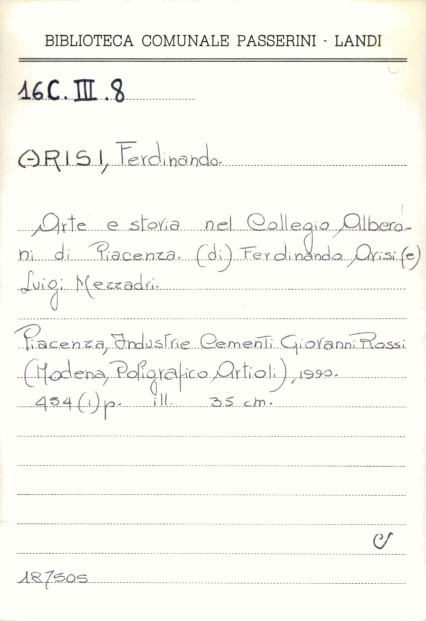 BIBLIOTECA COMUNALE PASSERINI - LANDI
16C. III. 8
ARISI, Ferdinando.
Arte e storia nel Collegio Albero-
ni di Piacenza. (di) Ferdinando Arisi (e)
Luigi Mezzadri.
Piacenza, Industrie Cementi Giovanni Rossi
(Modena, Poligrafico Artioli), 1990.
454 (1) p. ill. 35 cm.
187505